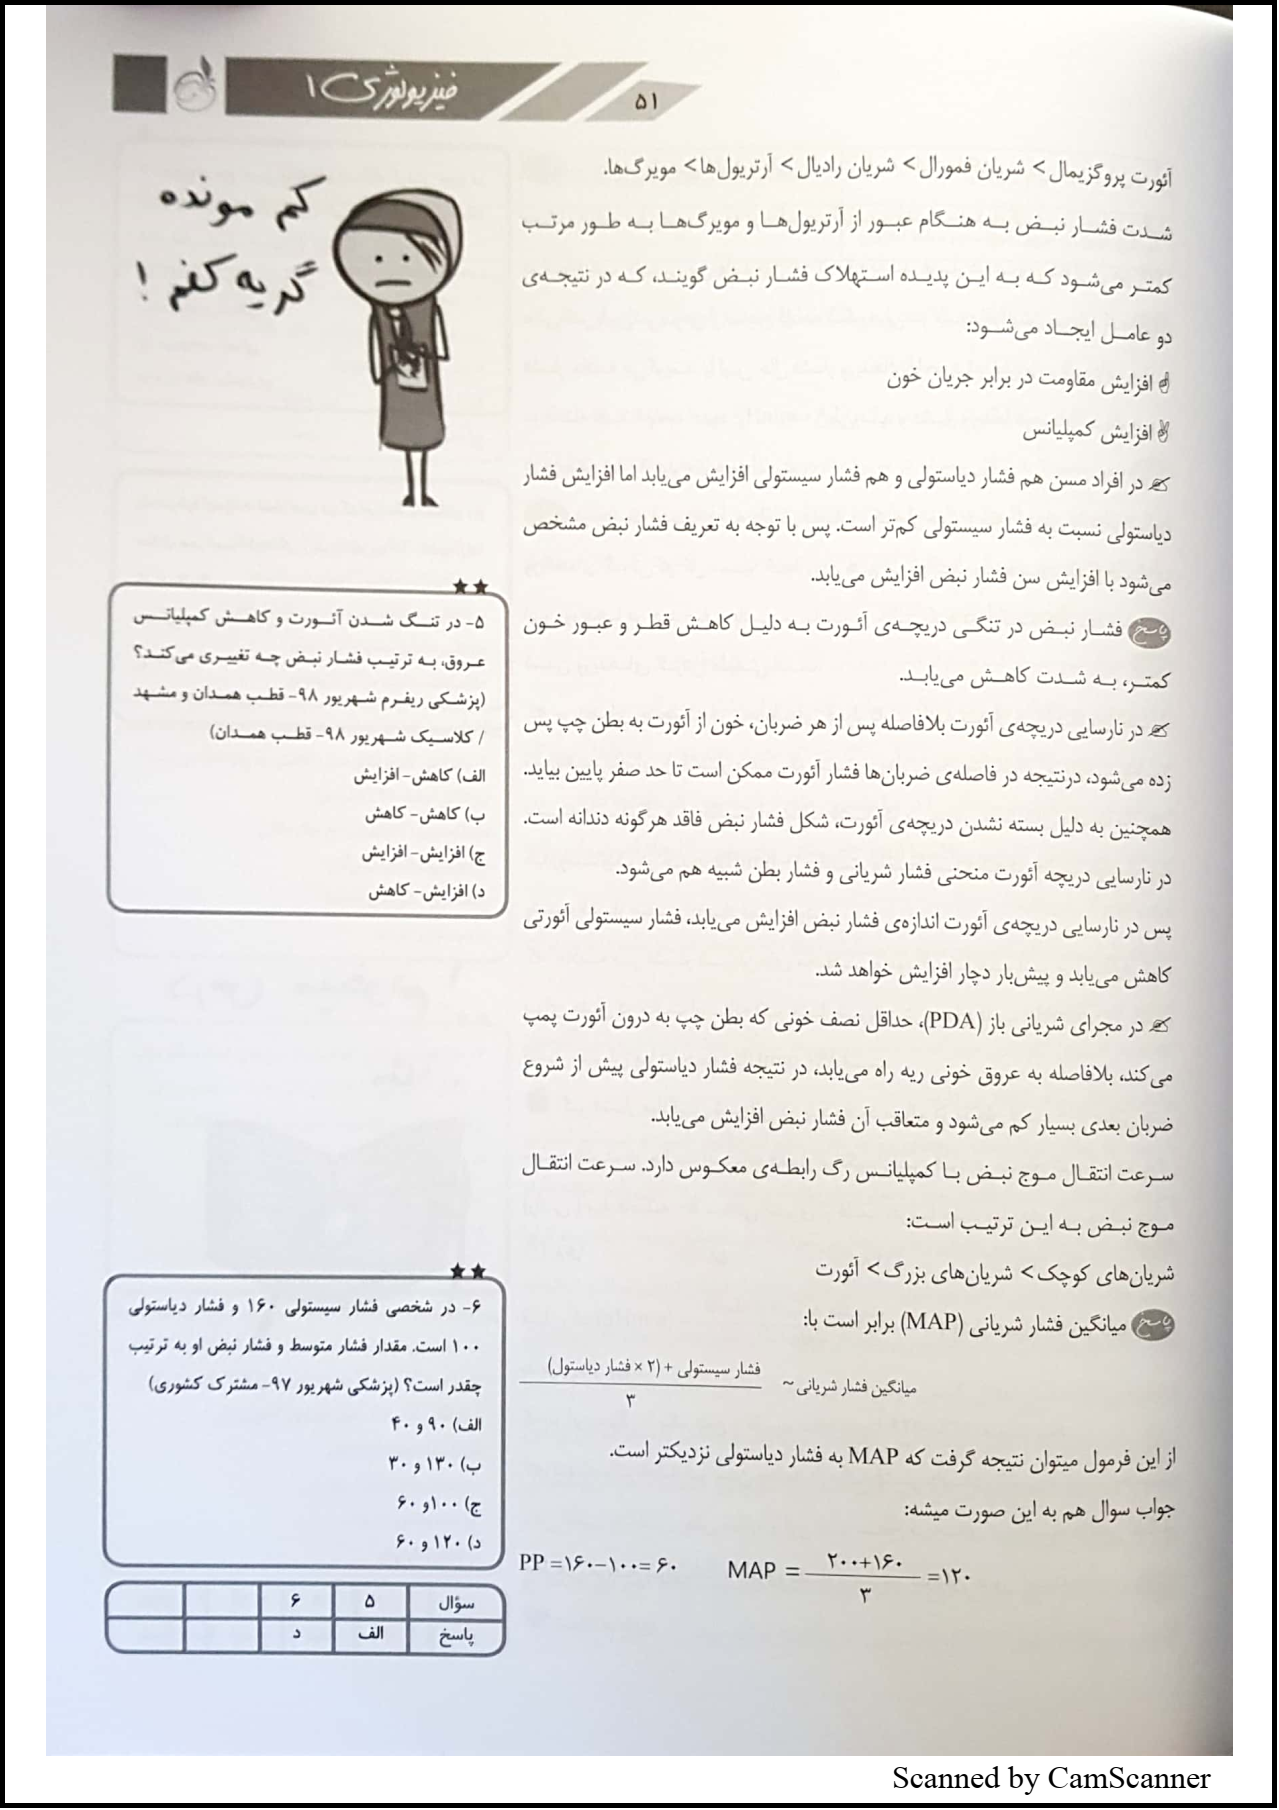 فیزیولوژی ۱
۵۱
آئورت پروگزیمال> شریان فمورال> شریان رادیال> آرتریول‌ها> مویرگ‌ها.
شدت فشار نبض به هنگام عبور از آرتریول‌ها و مویرگ‌ها به طور مرتب
کمتر می‌شود که به این پدیده استهلاک فشار نبض گویند، که در نتیجه‌ی
دو عامل ایجاد می‌شود:
افزایش مقاومت در برابر جریان خون
افزایش کمپلیانس
در افراد مسن هم فشار دیاستولی و هم فشار سیستولی افزایش می‌یابد اما افزایش فشار
دیاستولی نسبت به فشار سیستولی کم‌تر است. پس با توجه به تعریف فشار نبض مشخص
می‌شود با افزایش سن فشار نبض افزایش می‌یابد.
پاسخ فشار نبض در تنگی دریچه‌ی آئورت به دلیل کاهش قطر و عبور خون
کمتر، به شدت کاهش می‌یابد.
در نارسایی دریچه‌ی آئورت بلافاصله پس از هر ضربان، خون از آئورت به بطن چپ پس
زده می‌شود، درنتیجه در فاصله‌ی ضربان‌ها فشار آئورت ممکن است تا حد صفر پایین بیاید.
همچنین به دلیل بسته نشدن دریچه‌ی آئورت، شکل فشار نبض فاقد هرگونه دندانه است.
در نارسایی دریچه آئورت منحنی فشار شریانی و فشار بطن شبیه هم می‌شود.
پس در نارسایی دریچه‌ی آئورت اندازه‌ی فشار نبض افزایش می‌یابد، فشار سیستولی آئورتی
کاهش می‌یابد و پیش‌بار دچار افزایش خواهد شد.
در مجرای شریانی باز (PDA)، حداقل نصف خونی که بطن چپ به درون آئورت پمپ
می‌کند، بلافاصله به عروق خونی ریه راه می‌یابد، در نتیجه فشار دیاستولی پیش از شروع
ضربان بعدی بسیار کم می‌شود و متعاقب آن فشار نبض افزایش می‌یابد.
سرعت انتقال موج نبض با کمپلیانس رگ رابطه‌ی معکوس دارد. سرعت انتقال
موج نبض به این ترتیب است:
شریان‌های کوچک> شریان‌های بزرگ> آئورت
پاسخ میانگین فشار شریانی (MAP) برابر است با:
میانگین فشار شریانی ~ فشار سیستولی + (۲ × فشار دیاستول)
۳
از این فرمول میتوان نتیجه گرفت که MAP به فشار دیاستولی نزدیکتر است.
جواب سوال هم به این صورت میشه:
PP =۱۶۰−۱۰۰= ۶۰ MAP = ۲۰۰+۱۶۰ =۱۲۰
۳
کم مونده
گریه کنم !
۵- در تنگ شدن آئورت و کاهش کمپلیانس
عروق، به ترتیب فشار نبض چه تغییری می‌کند؟
(پزشکی ریفرم شهریور ۹۸- قطب همدان و مشهد
/ کلاسیک شهریور ۹۸- قطب همدان)
الف) کاهش- افزایش
ب) کاهش- کاهش
ج) افزایش- افزایش
د) افزایش- کاهش
۶- در شخصی فشار سیستولی ۱۶۰ و فشار دیاستولی
۱۰۰ است. مقدار فشار متوسط و فشار نبض او به ترتیب
چقدر است؟ (پزشکی شهریور ۹۷- مشترک کشوری)
الف) ۹۰ و ۴۰
ب) ۱۳۰ و ۳۰
ج) ۱۰۰و ۶۰
د) ۱۲۰ و ۶۰
سؤال ۵ ۶
پاسخ الف د
Scanned by CamScanner